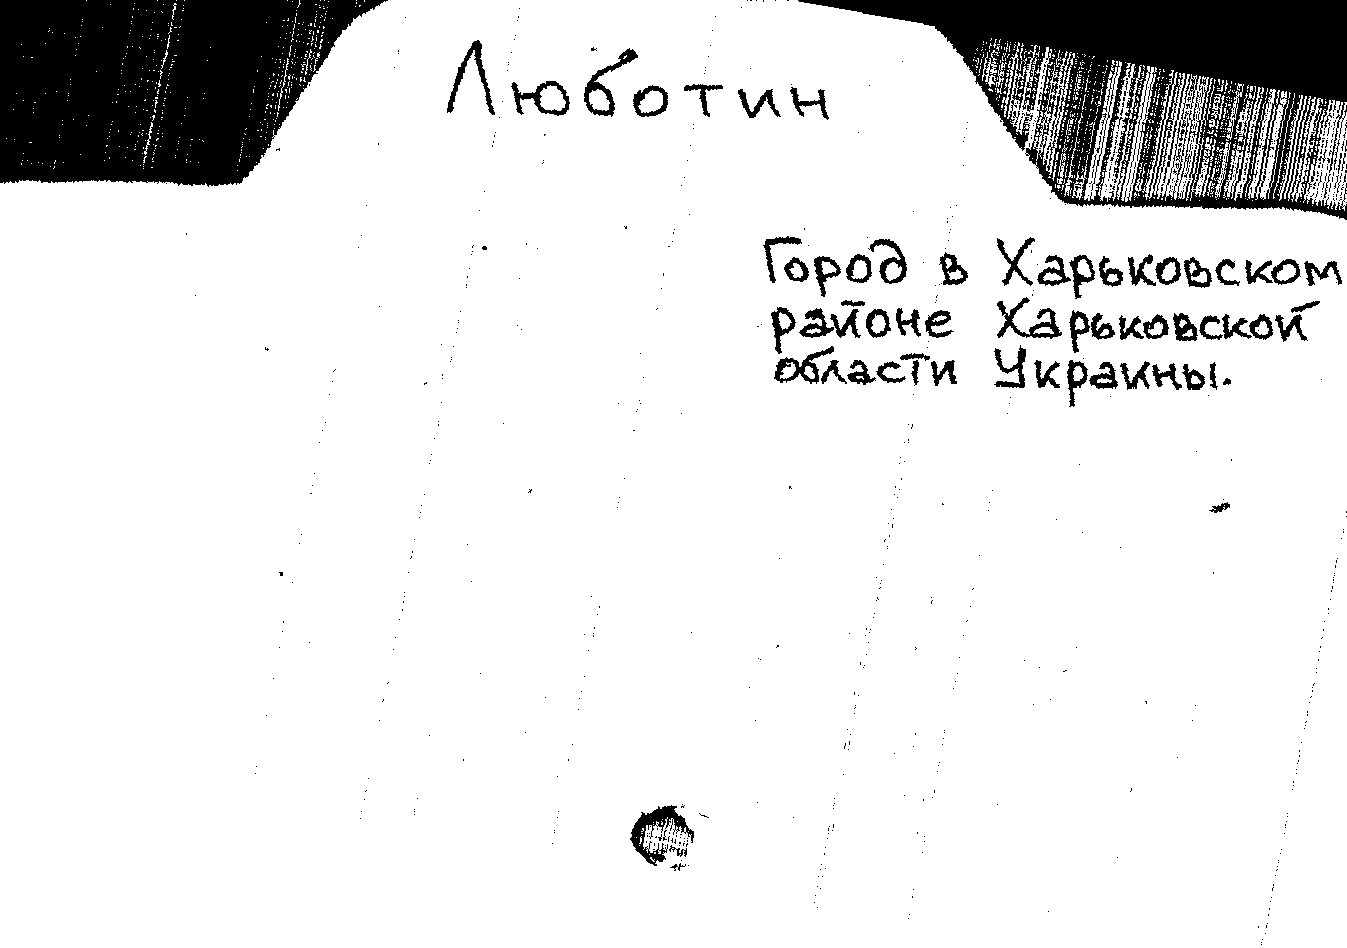 Люботин
Город в Харьковском
районе Харьковской
области Украины.